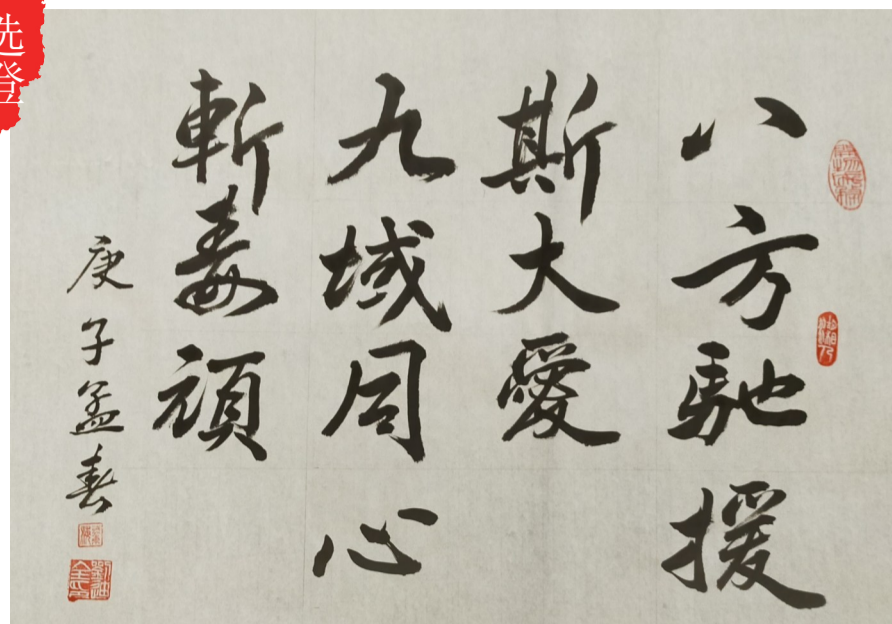 选登
八方馳援
斯大愛
九域同心
斬毒頑
庚子孟春